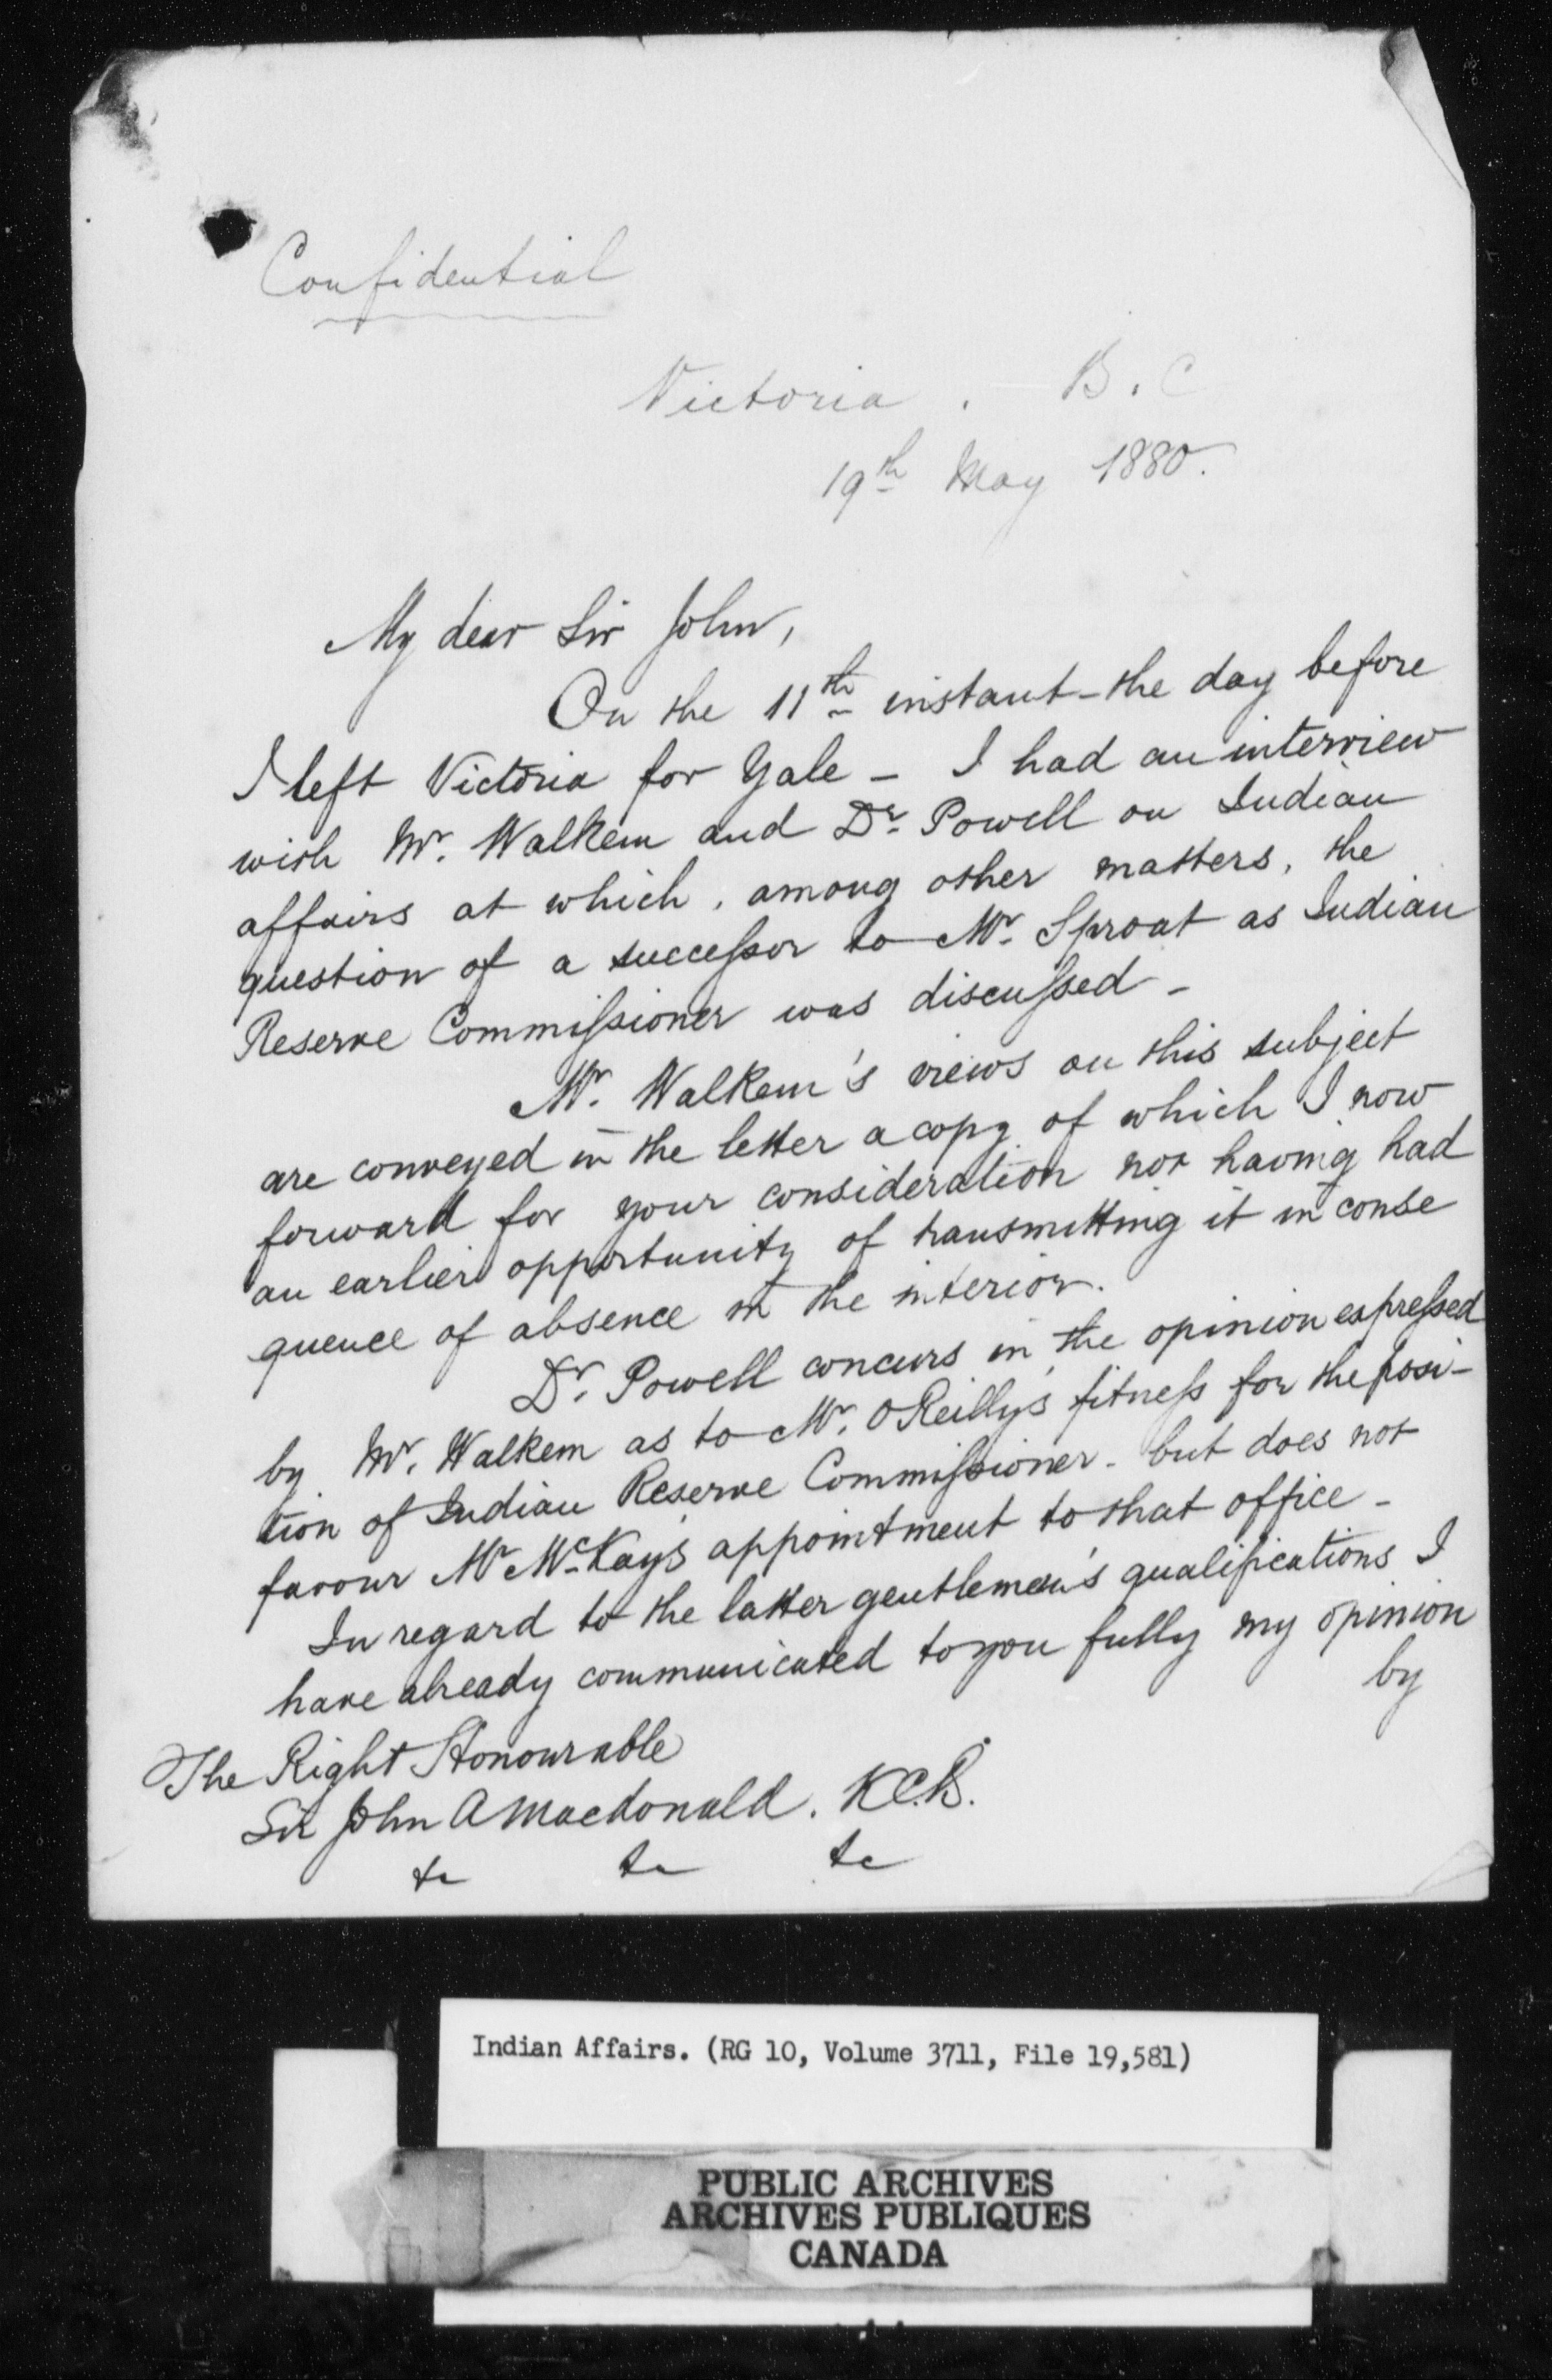 Confidential
Victoria. B.C
19th May 1880.
My dear Sir John,
On the 11th instant - the day before
I left Victoria for Yale - I had an interview
with Mr. Walkem and Dr. Powell on Indian
affairs at which, among other matters, the
question of a successor to Mr. Sproat as Indian
Reserve Commissioner was discussed -
Mr. Walkem's views on this subject
are conveyed in the letter a copy of which I now
forward for your consideration not having had
an earlier opportunity of transmitting it in conse
quence of absence in the interior.
Dr. Powell concurs in the opinion expressed
by Mr. Walkem as to Mr. O'Reilly's fitness for the posi-
tion of Indian Reserve Commissioner - but does not
favour Mr McKay's appointment to that office -
In regard to the latter gentleman's qualifications I
have already communicated to you fully my opinion
by
The Right Honourable
Sir John A Macdonald. K.C.B.
&c &c &c
Indian Affairs. (RG 10, Volume 3711, File 19,581)
PUBLIC ARCHIVES
ARCHIVES PUBLIQUES
CANADA